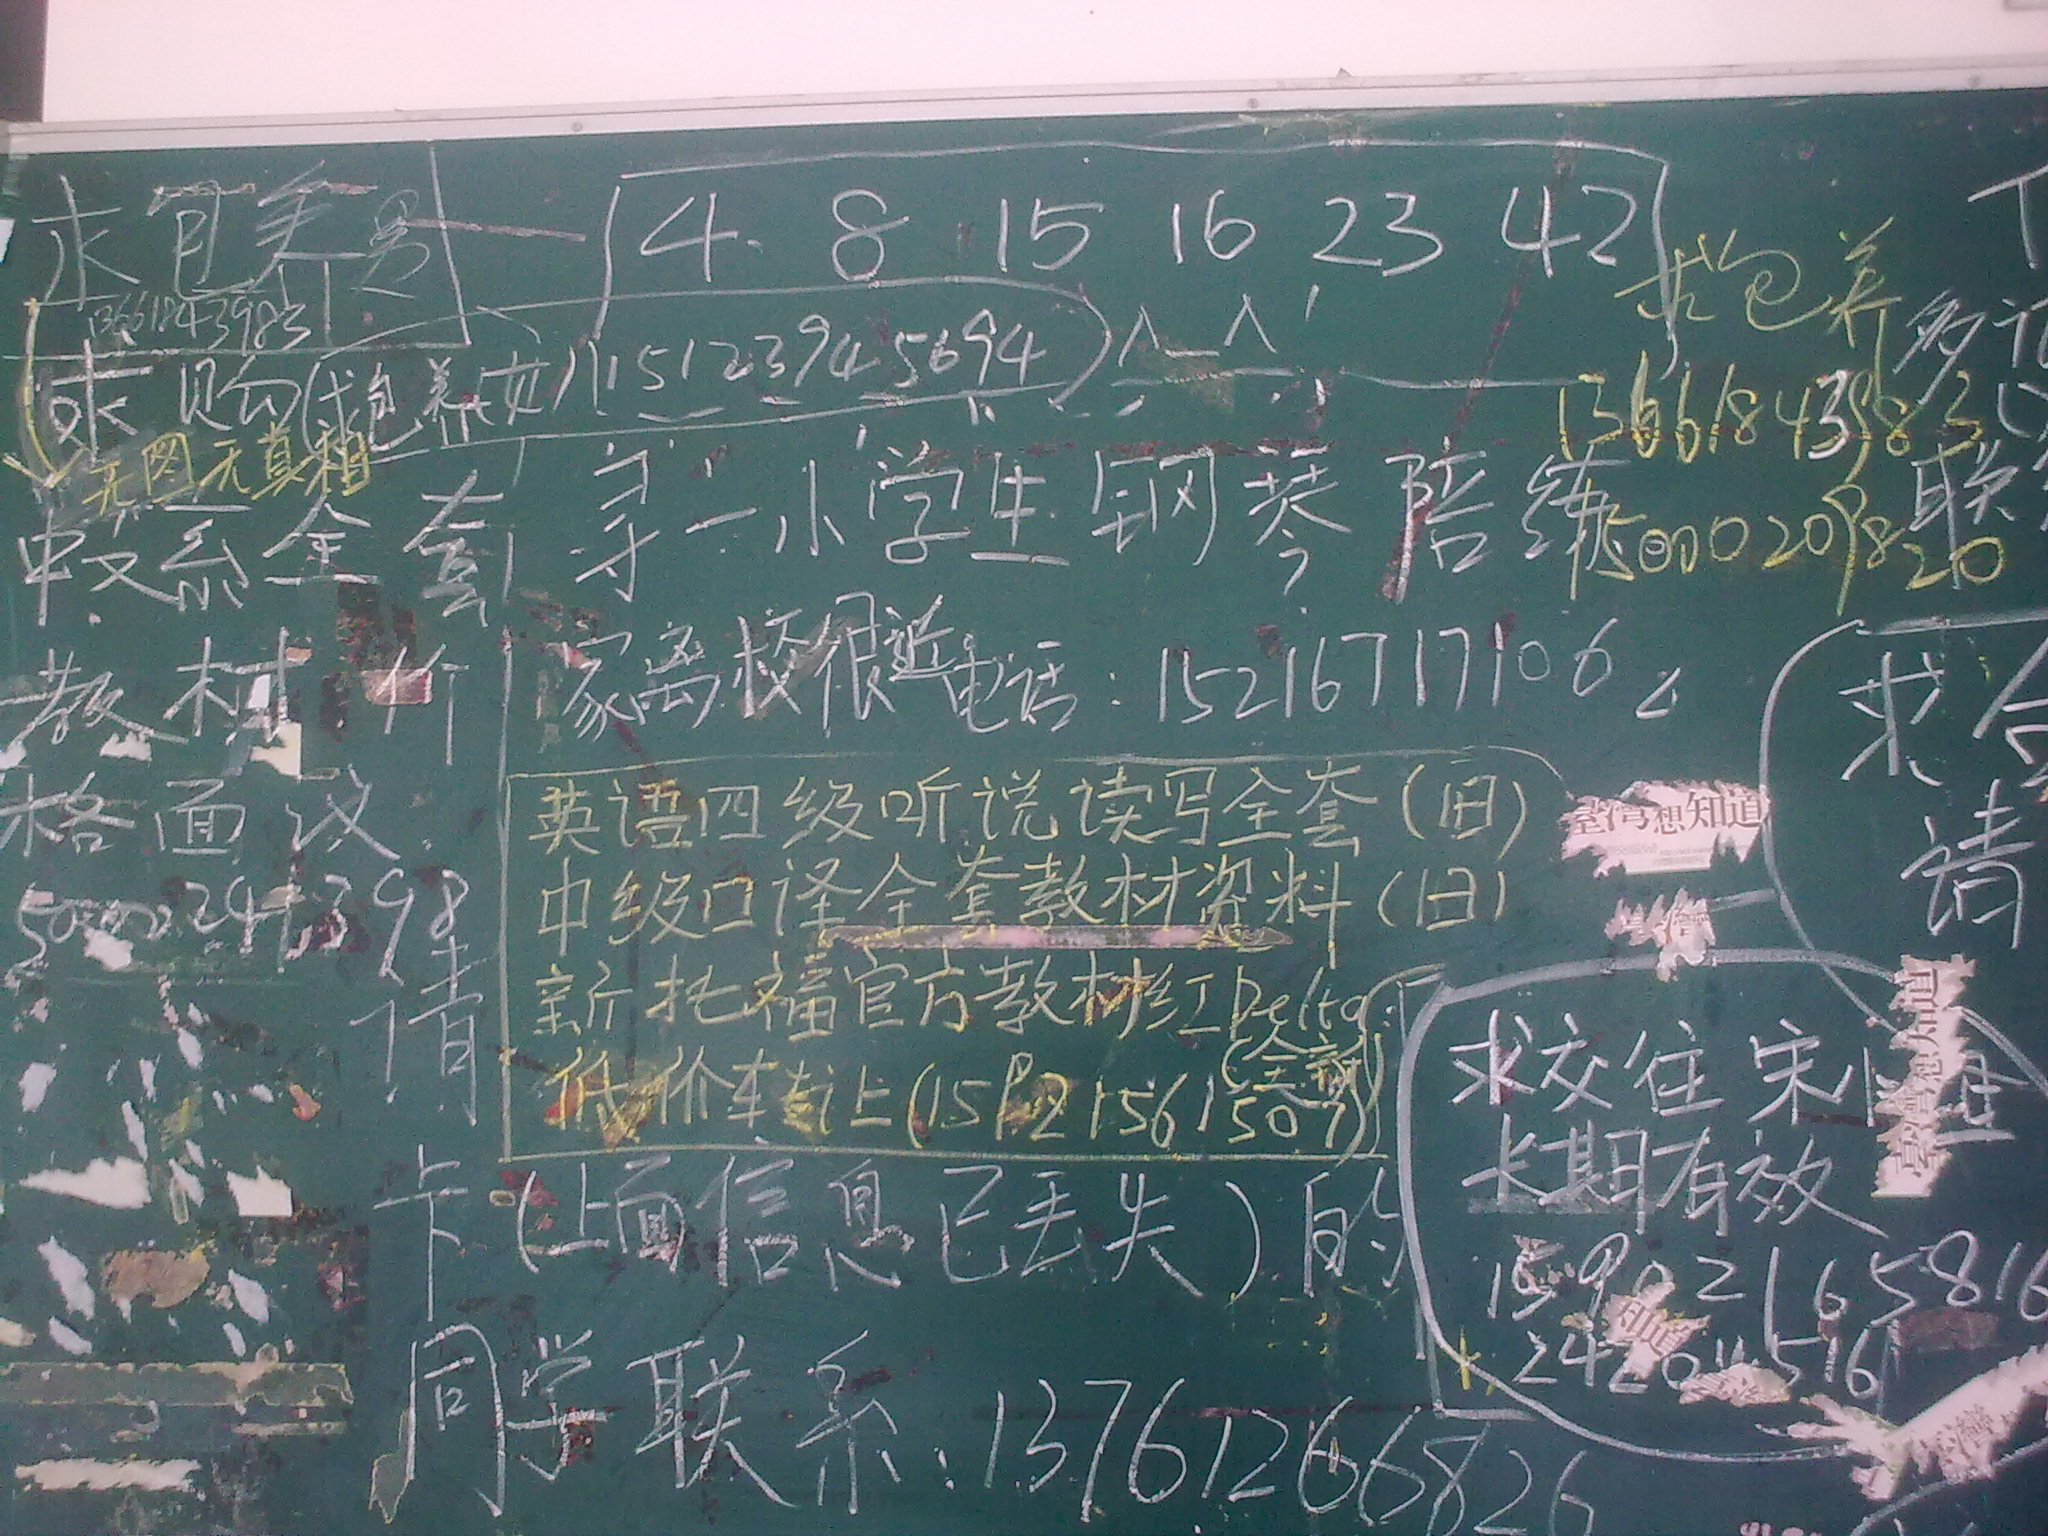 求包养 男
13661843983
4 8 15 16 23 42
求包养
13661843983
求购(求包养女)(15123945694) ^_^
无图无真相
寻一小学生钢琴陪练
家离校很近 电话:15216717106
中文系全套
教材 价
格面议
情
英语四级听说读写全套(旧)
中级口译全套教材资料(旧)
新托福官方教材红Delta
(全新)
低价转让(15121561507)
臺灣想知道
臺灣
臺灣想知道
求
请
求交往宋
长期有效
15902165816
知道
卡(上面信息已丢失)的
同学联系:13761266826